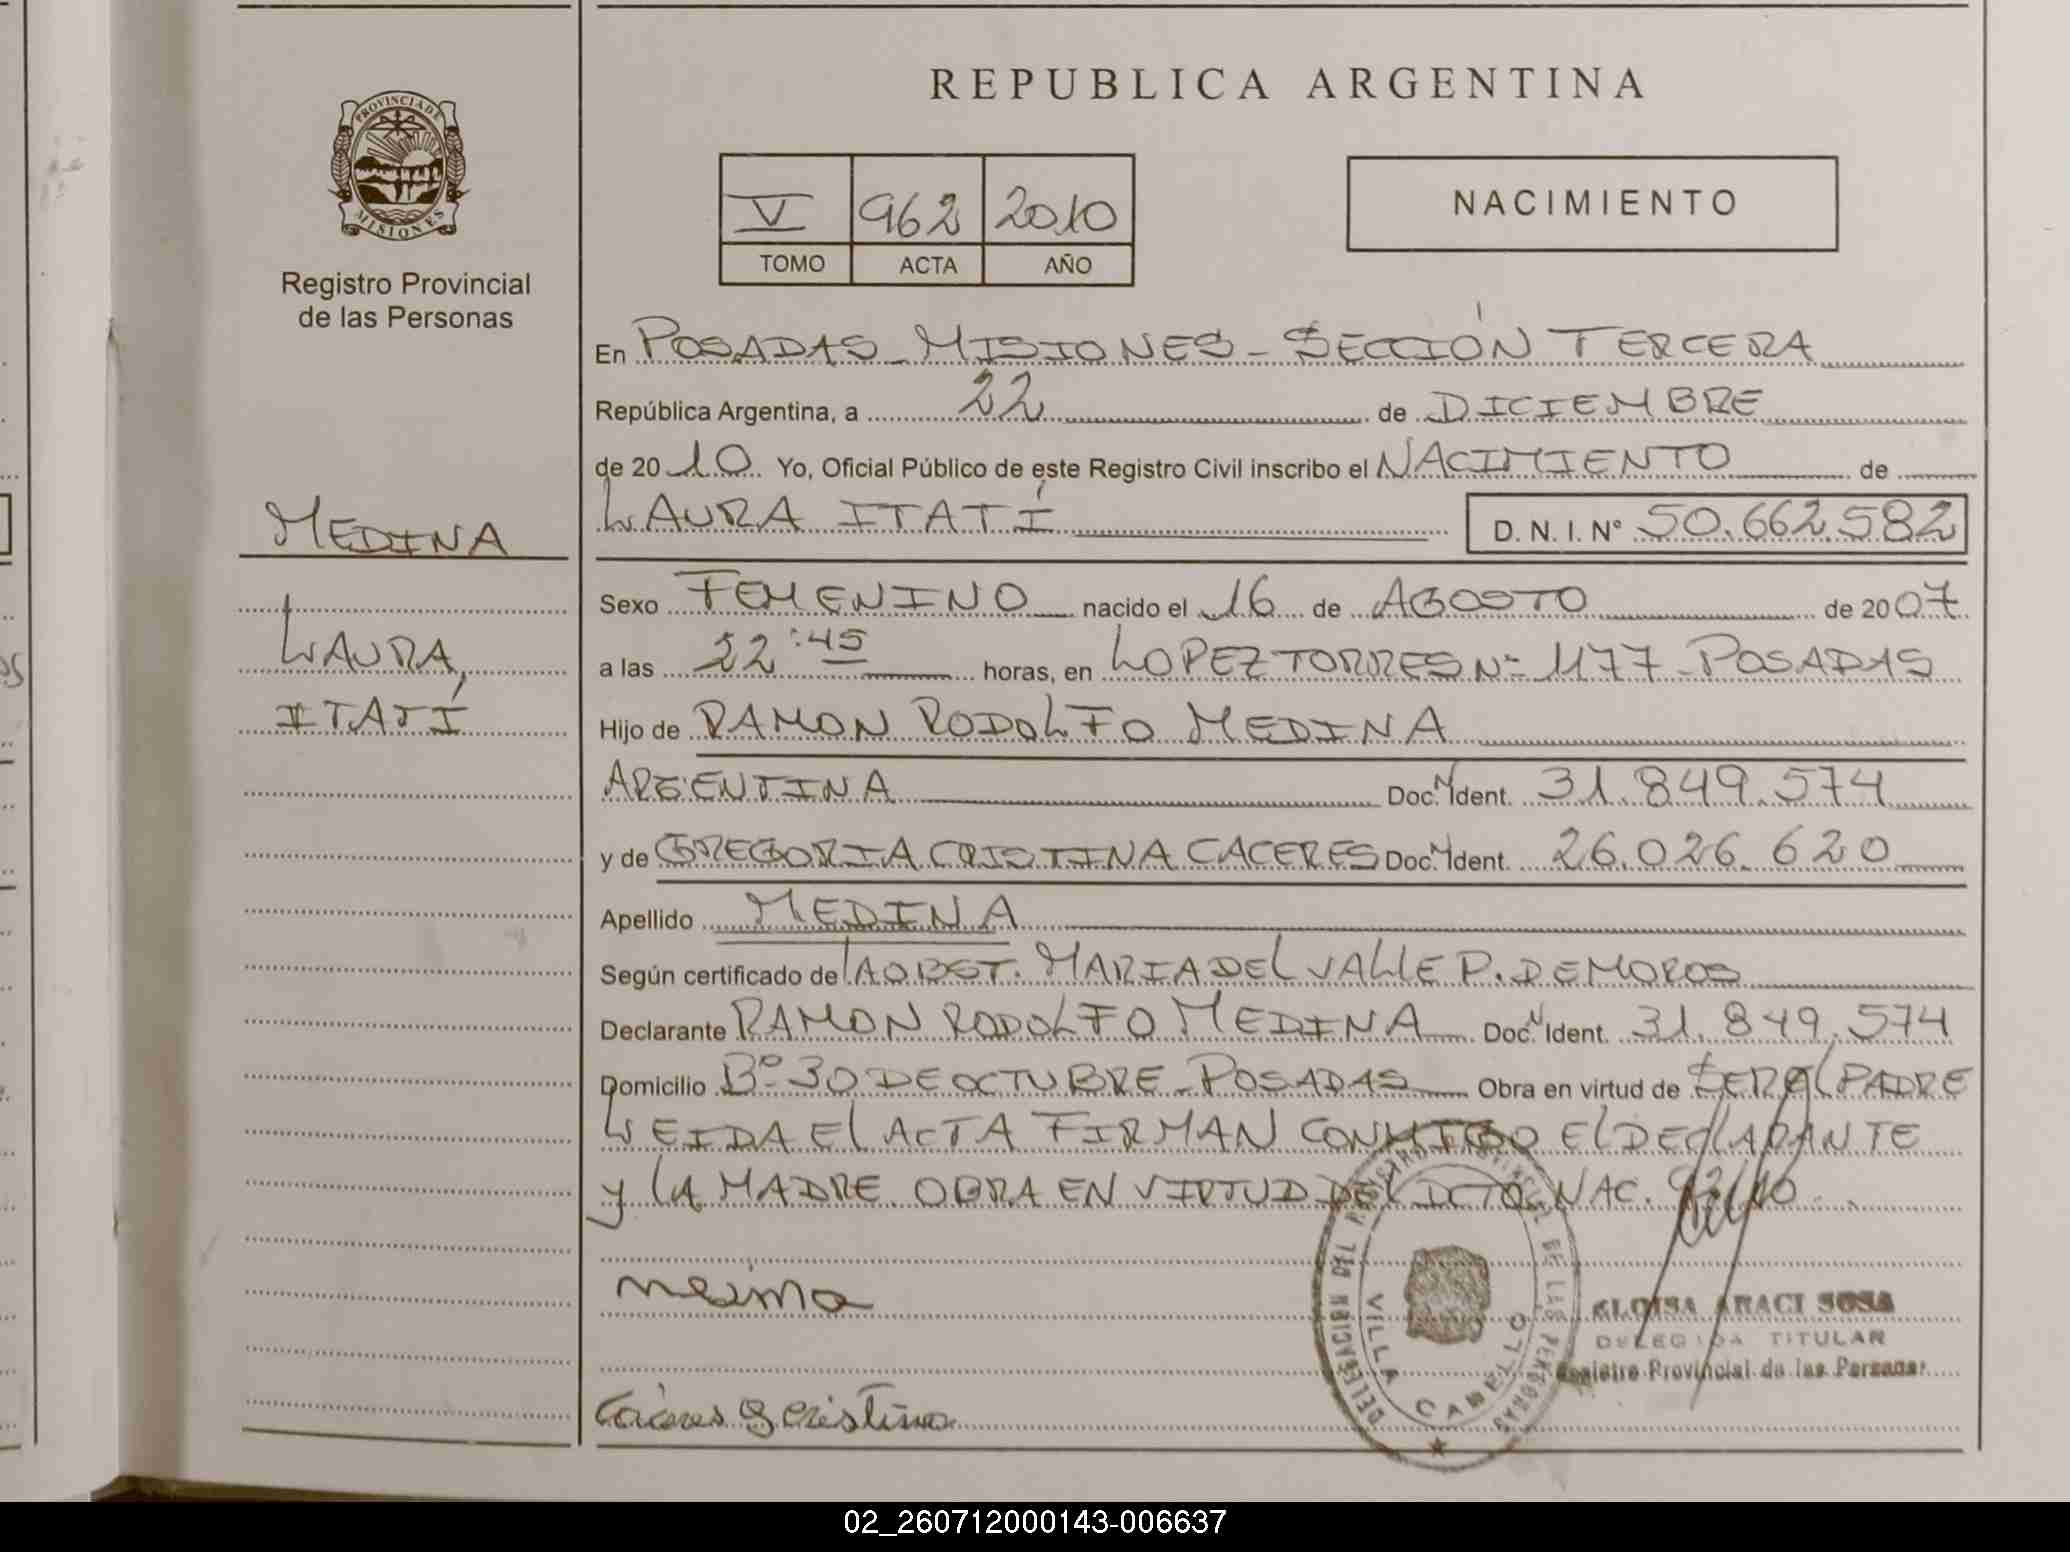 PROVINCIA DE
MISIONES
Registro Provincial
de las Personas
MEDINA
LAURA,
ITATÍ
REPUBLICA ARGENTINA
V 962 2010
TOMO ACTA AÑO
NACIMIENTO
En POSADAS - MISIONES - SECCIÓN TERCERA
República Argentina, a 22 de DICIEMBRE
de 2010 Yo, Oficial Público de este Registro Civil inscribo el NACIMIENTO de
LAURA ITATÍ D. N. I. N° 50.662.582
Sexo FEMENINO nacido el 16 de AGOSTO de 2007
a las 22:45 horas, en LOPEZ TORRES Nº 1177 - POSADAS
Hijo de RAMON RODOLFO MEDINA
ARGENTINA Doc. N Ident. 31.849.574
y de GREGORIA CRISTINA CACERES Doc. N Ident. 26.026.620
Apellido MEDINA
Según certificado de LA OBST. MARIA DEL VALLE P. DE MOROS
Declarante RAMON RODOLFO MEDINA Doc. N Ident. 31.849.574
Domicilio Bº 30 DE OCTUBRE - POSADAS Obra en virtud de SER EL PADRE
LEIDA EL ACTA FIRMAN CONMIGO EL DECLARANTE
y LA MADRE. OBRA EN VIRTUD DEL DCTO. NAC. 92/10
Cáceres G Cristina
DELEGACION DEL REGISTRO PROVINCIAL DE LAS PERSONAS
VILLA CABELLO
ELOISA ARACI SOSA
DELEGADA TITULAR
Registro Provincial de las Personas
02_260712000143-006637